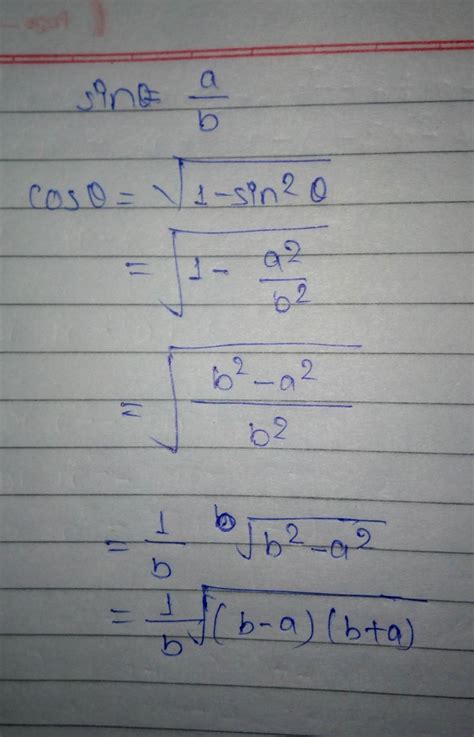 sinθ= a/b
cosθ = √(1-sin²θ)
= √(1 - a²/b²)
= √((b²-a²)/b²)
= 1/b √(b²-a²)
= 1/b √((b-a)(b+a))